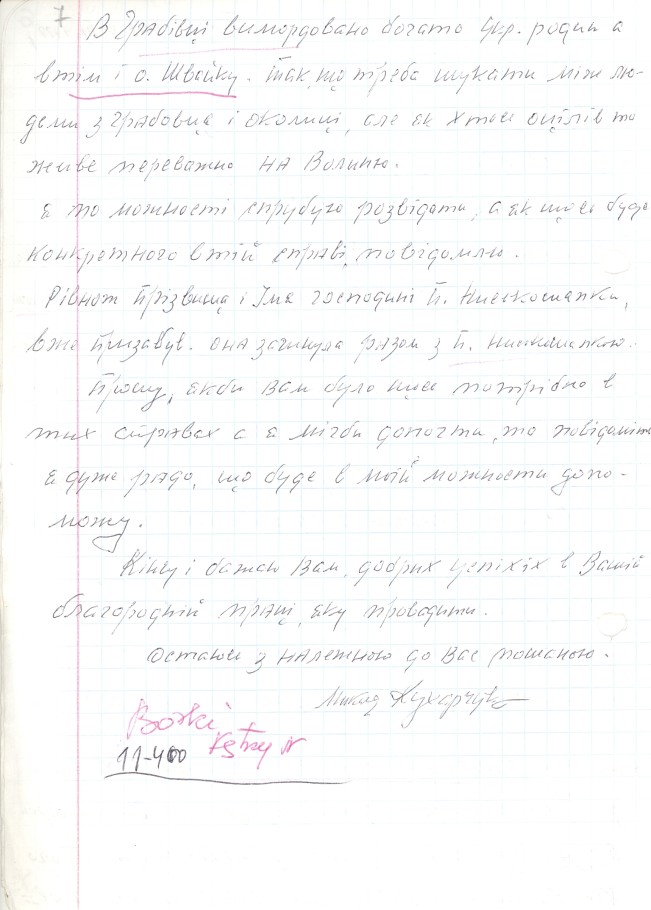 7
В Грабівці вимордовано богато укр. родин а
втім і о. Швайку. Так, що треба шукати між лю-
дьми з Грабовця і околиці, але як хтось оцілів то
живе переважно на Волиню.
Я по можності спрубую розвідати, а як щось буде
конкретного в тій справі, повідомлю.
Рівнож прізвища і Імя господині п.
вже призабув. она загинула разом з п.
Прошу, якби Вам було щось потрібно в
тих справах а я мігби допогти, то повідоміть
я дуже радо, що буде в моїй можности допо-
можу.
Кінчу і бажаю Вам, добрих успіхіх в Вашій
благородній праці, яку проводити.
Остаюсь з належною до Вас пошаною.
Кухарчук
Borki
11-400 Kętrzyn